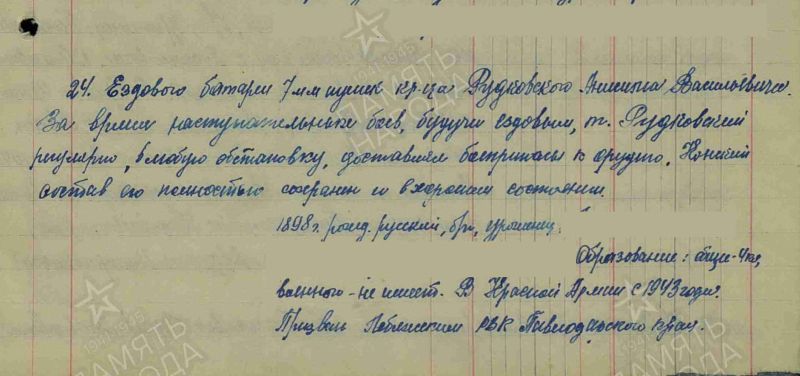 24. Ездового батареи 7 мм пушек кр-ца Рудковского Васильевича.
За время наступательных боев, будучи ездовым, т. Рудковский
регулярно, в любую обстановку, доставлял боеприпасы к орудию. Конский
состав его полностью сохранен и в хорошем состоянии.
1898 г. рожд. русский, б/п, уроженец
Образование: общее - 4 кл,
военного - не имеет. В Красной Армии с 1943 года.
Призван РВК края.
ПАМЯТЬ НАРОДА
1941-1945